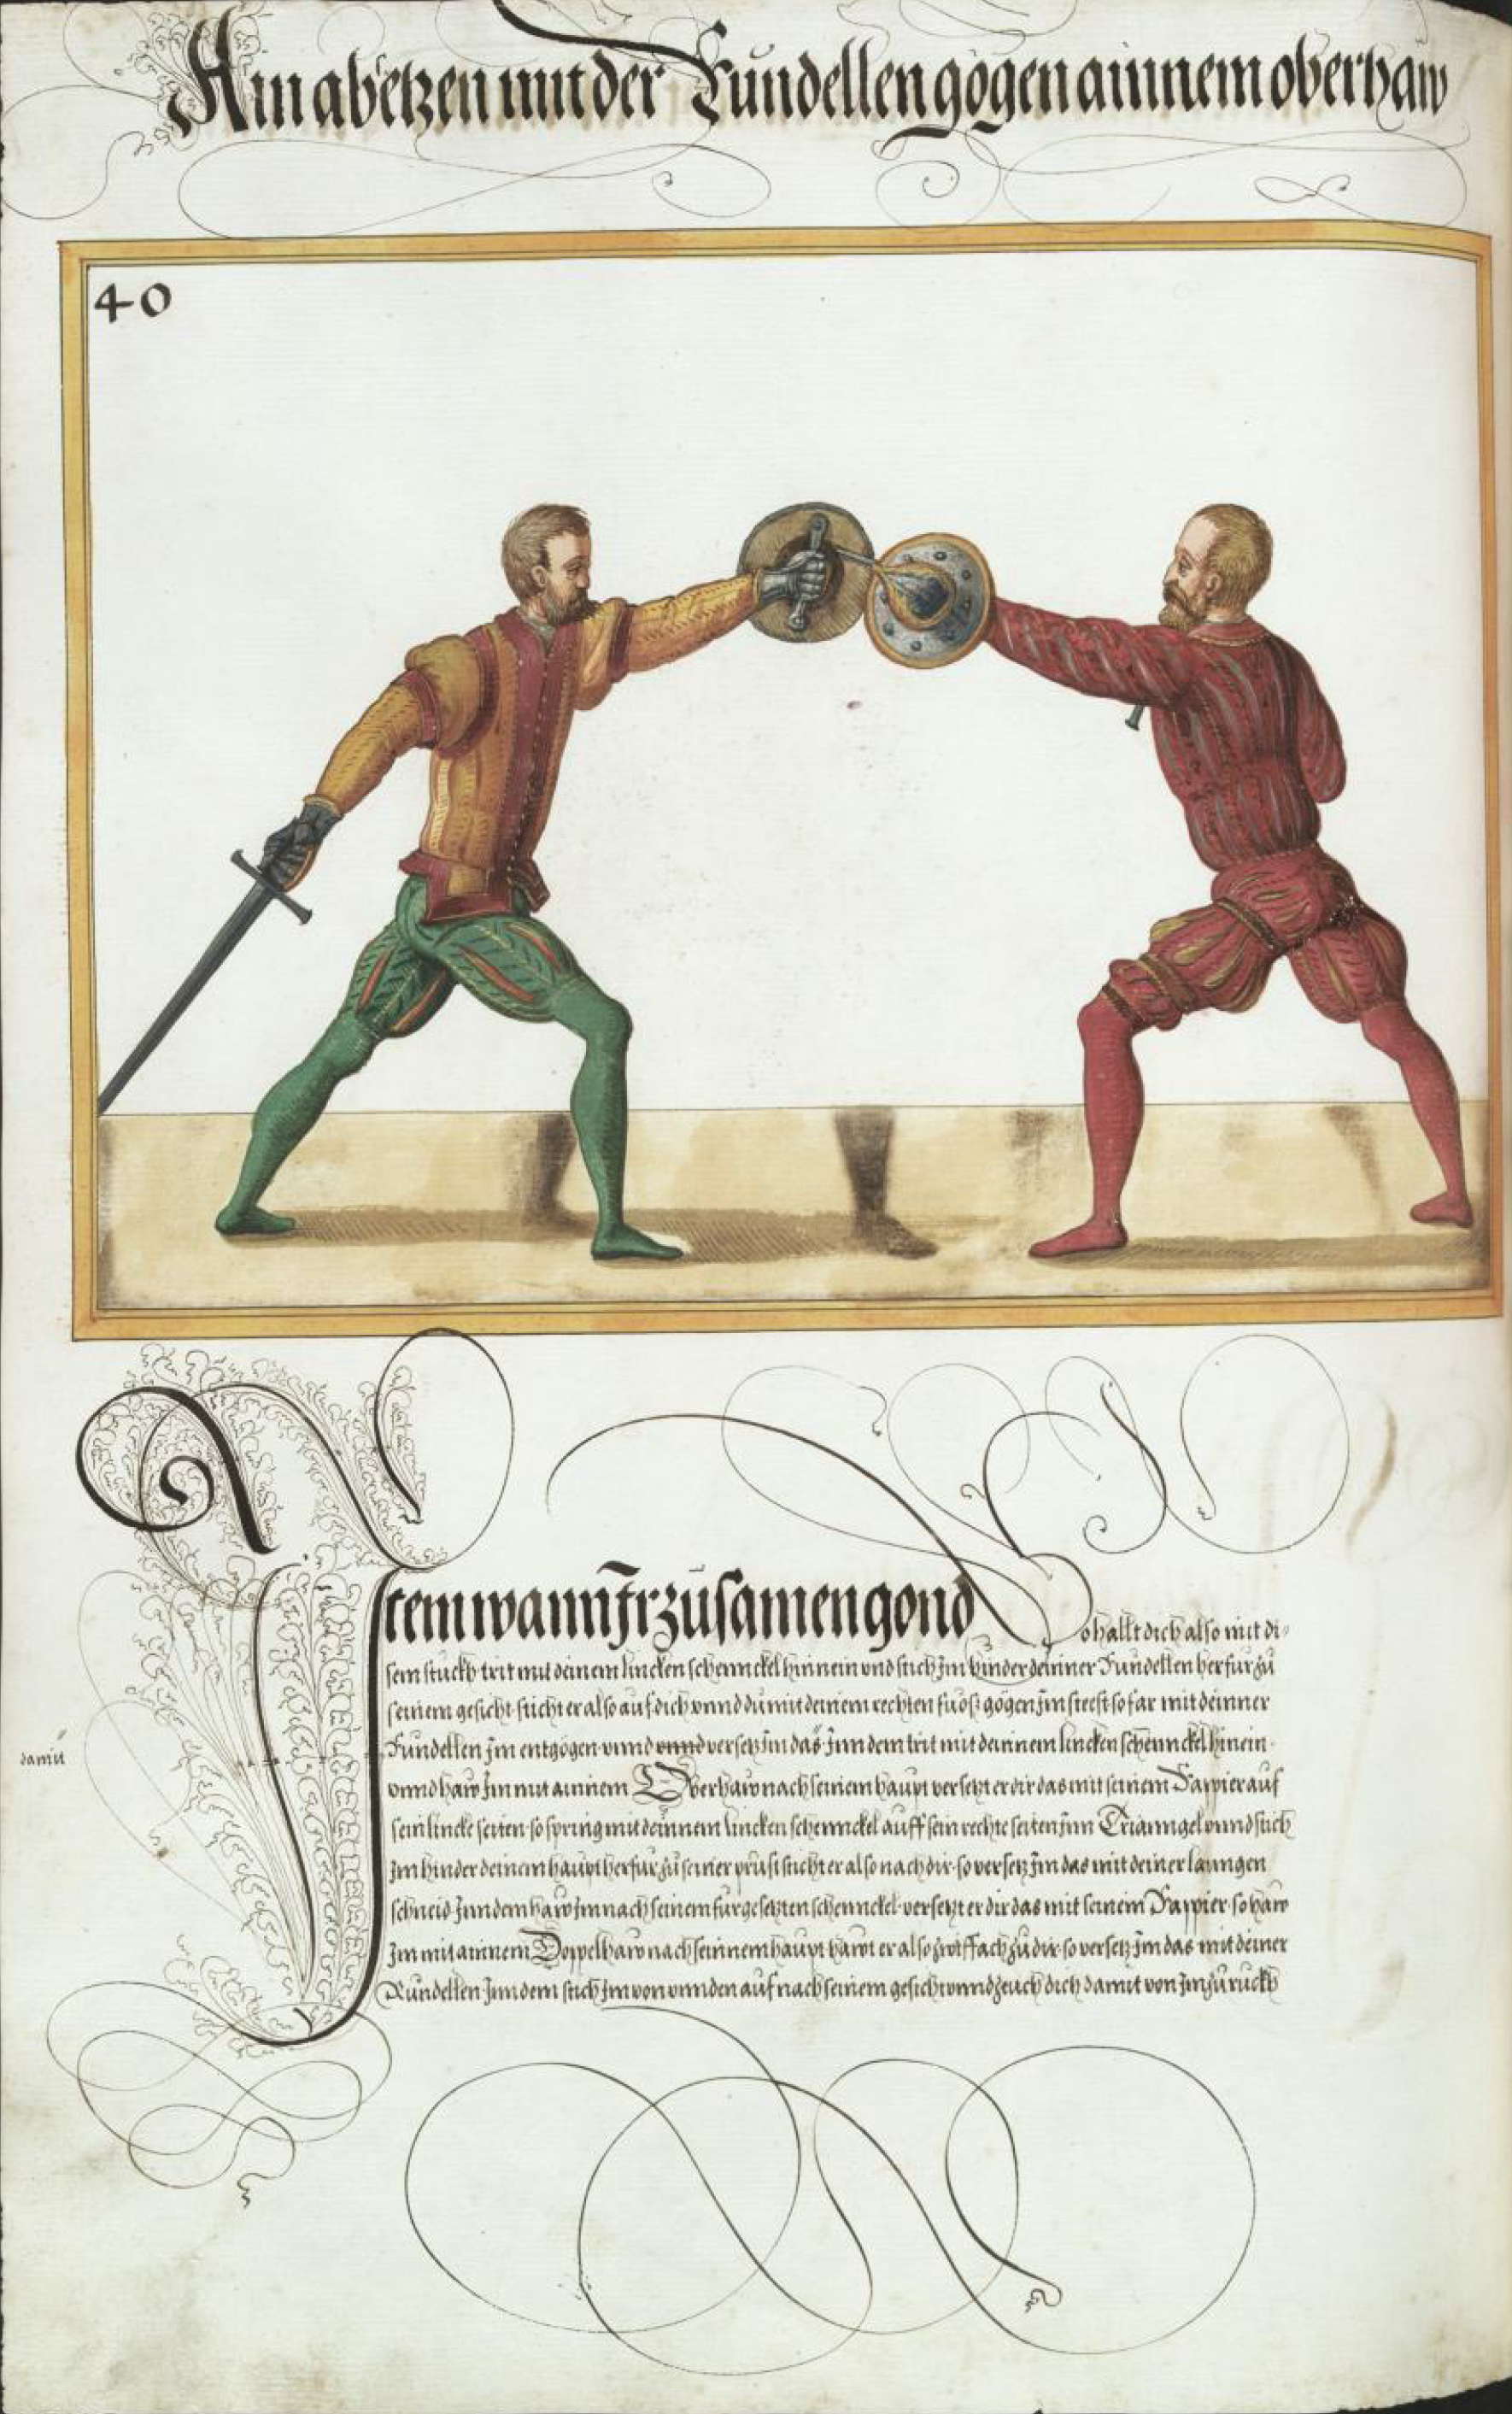 Ain absetzen mit der Rundellen gögen ainnem oberhaw
40
Item wann Ir zusamen gond So hallt dich also mit di-
sem stuckh trit mit deinem lincken schennckel hinnein vnd stich Im hinder deinner Rundellen herfur zu
seinem gesicht sticht er also auf dich vnnd du mit deinem rechten fuosz gögen Im steest so far mit deinner
Rundellen Im entgögen vnnd vnnd versetz Im das Inn dem trit mit deinnem lincken schennckel hinein
damit
vnnd haw Im mit ainnem Oberhaw nach seinem haupt versetzt er dir das mit seinem Rappier auf
sein lincke seiten so spring mit deinnem lincken schennckel auff sein rechte seiten Inn Trianngel vnnd stich
Im hinder deinem haupt herfur zu seiner prust sticht er also nach dir so versetz Im das mit deiner lanngen
schneid Inn dem haw Im nach seinem furgesetzten schennckel versetzt er dir das mit seinem Rappier so haw
Im mit ainnem Doppelhaw nach seinnem haupt hawt er also zwiffach zu dir so versetz Im das mit deiner
Rundellen Inn dem stich Im von vnnden auf nach seinem gesicht vnnd zeuch dich damit von Im zuruckh